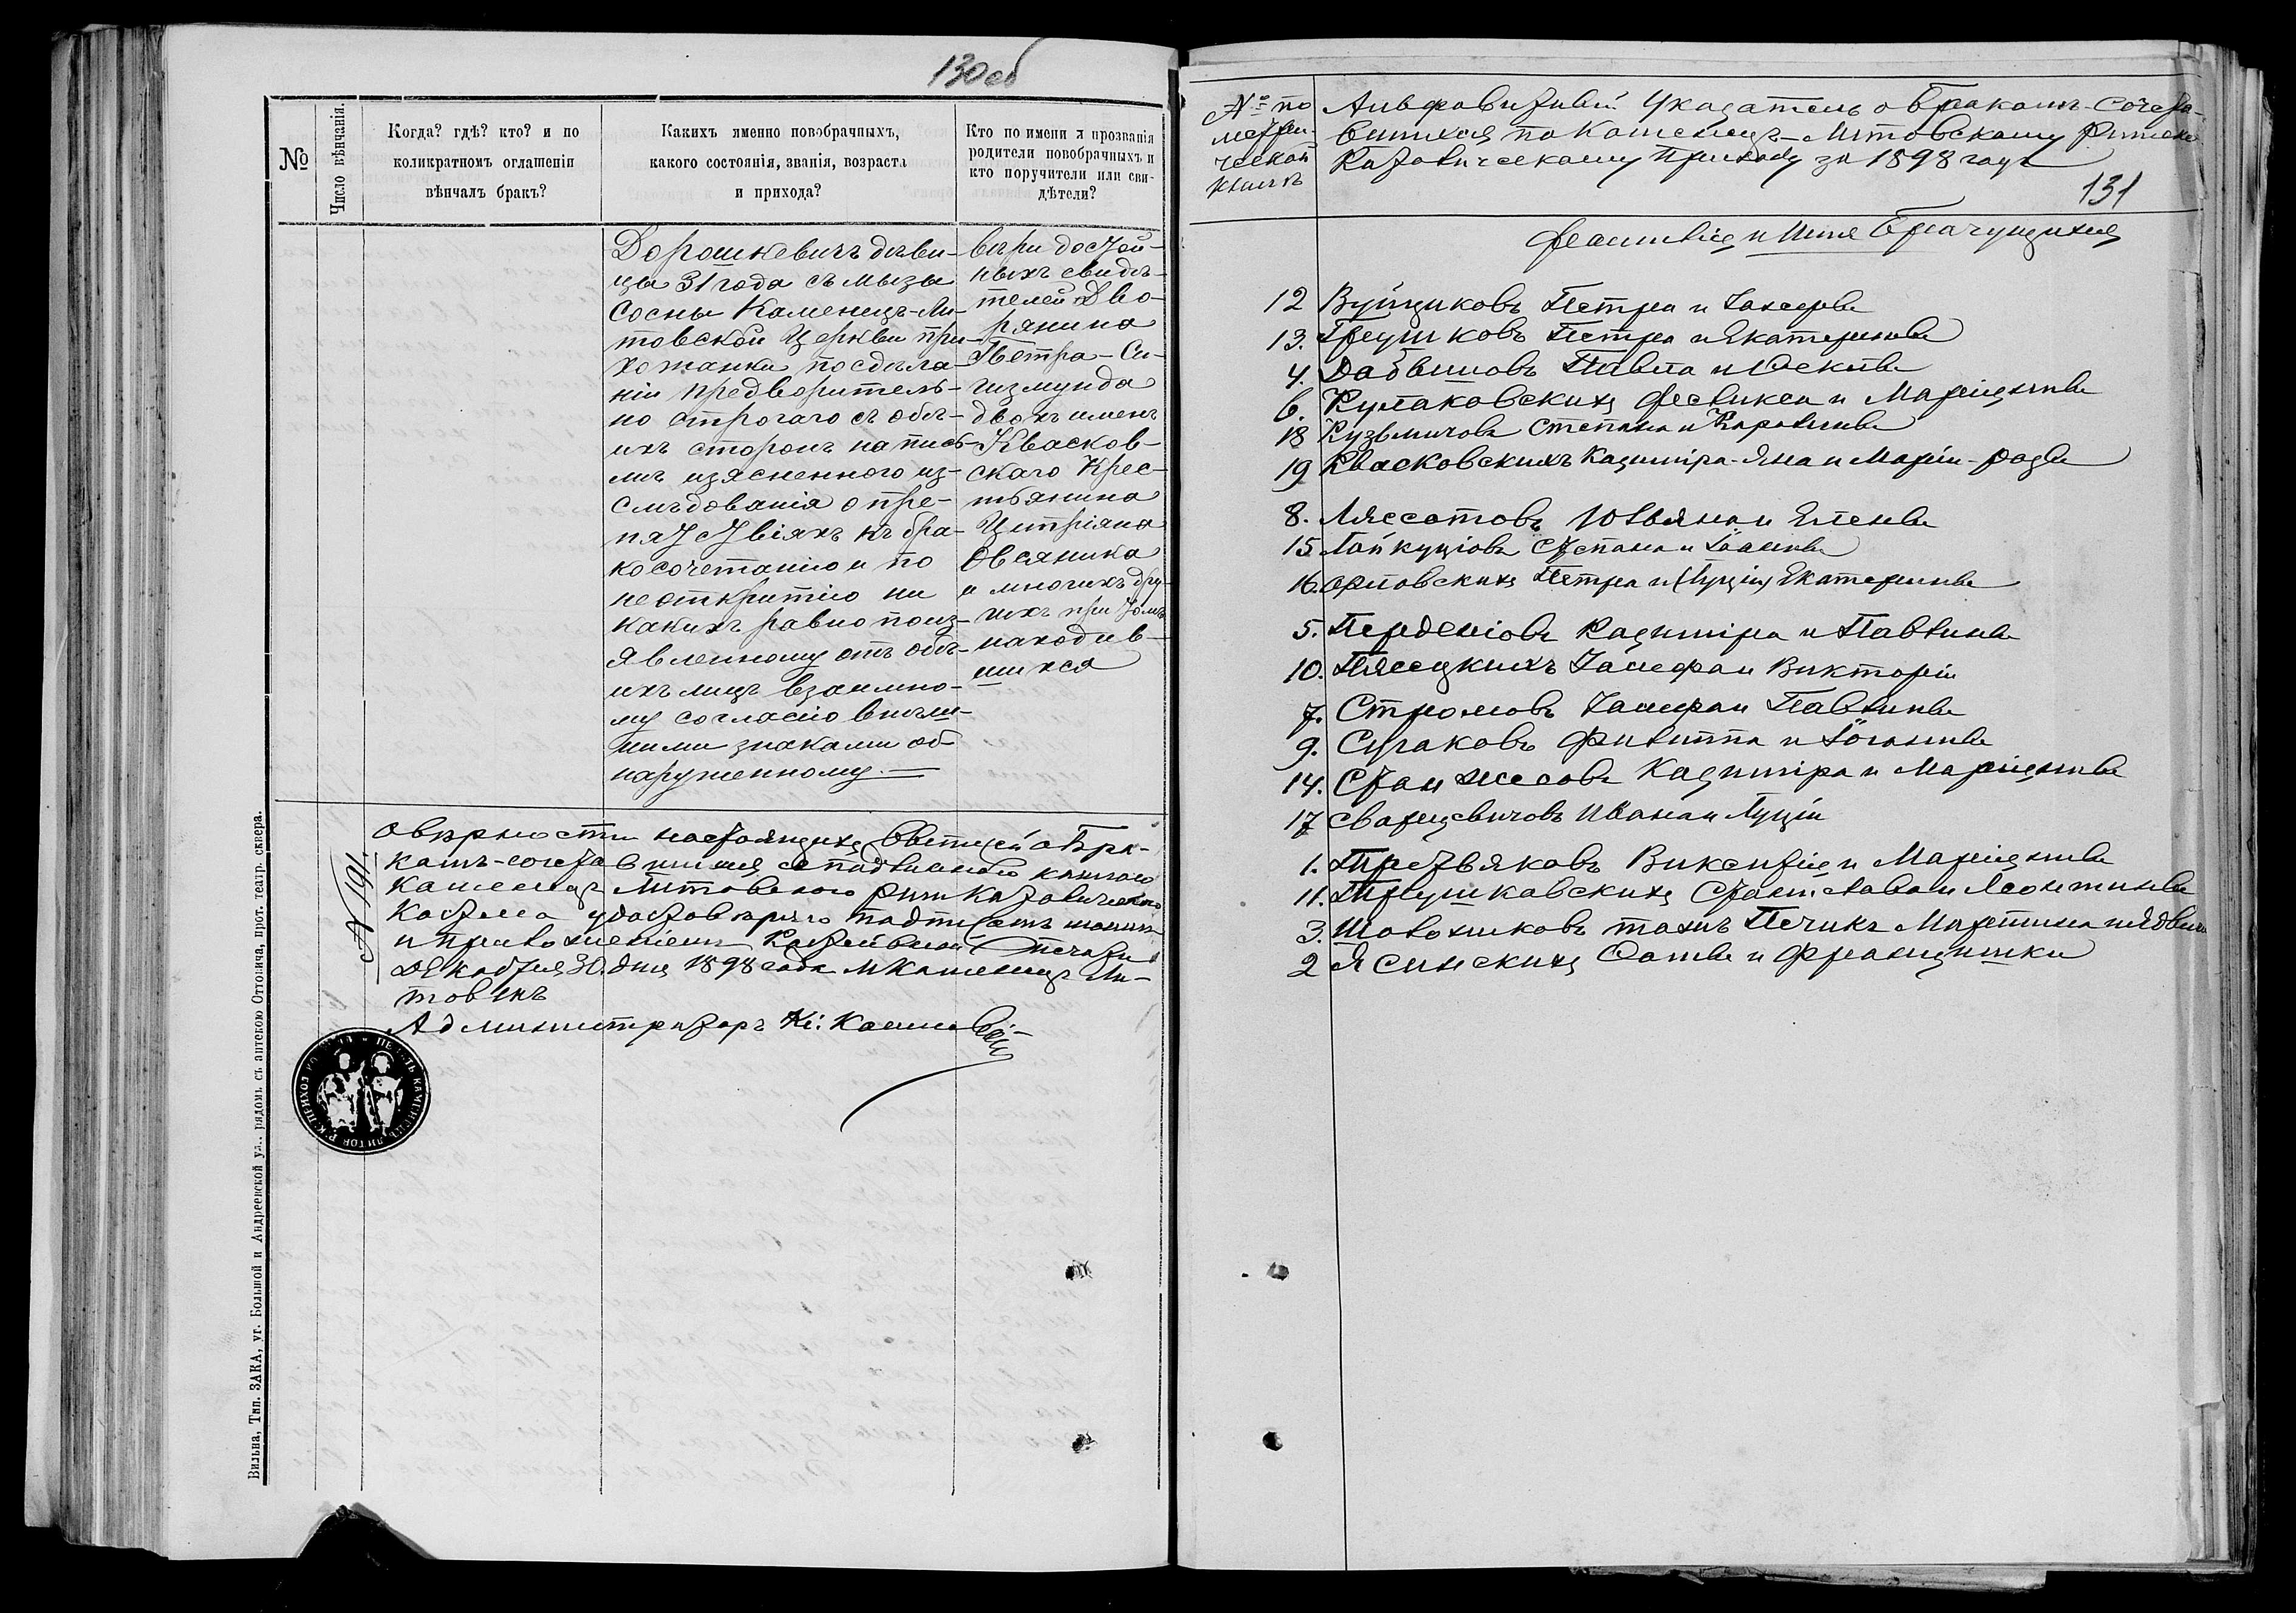 130 об
№
Число вѣнчанія.
Когда? гдѣ? кто? и по
коликратномъ оглашеніи
вѣнчалъ бракъ?
Какихъ именно новобрачныхъ,
какого состоянія, званія, возраста
и прихода?
Кто по имени и прозванія
родители новобрачныхъ и
кто поручители или сви-
дѣтели?
Дорошкевичъ дѣви-
цы 31 года съ мызы
Сосны Каменецъ-Ли-
товской Церкви при-
хожанки по сдѣла-
ніи предворитель-
но строгаго съ обѣ-
ихъ сторонъ на пись-
мѣ изясненного из-
слѣдованія о пре-
пятствіяхъ къ бра-
косочетанію и по
неоткритію ни
какихъ равно поиз-
явленному отъ обѣ-
ихъ лицъ взаимно-
му согласію внѣш-
ними знаками об-
наруженному. —
вѣри достой-
ныхъ свидѣ-
телей Дво-
рянина
Петра-Си-
гизмунда
двохъ именъ
Квасков-
скаго Крес-
тьянина
Циприяна
Овсяника
и многихъ дру-
гихъ при томъ
находив-
шихся
О вѣрности настоящихъ Овтисей о Бра-
кахъ-сочетавшихся
Каменецъ Литовского Рим Католическаго
Костела удостовѣряю подписомъ моимъ
и приложеніемъ Костельной печати
Декабря 30 дня 1898 года М Каменецъ Ли-
товскъ
Администраторъ Кс:
№ 191.
ПЕЧАТЬ КАМЕНЕЦЪ ЛИТОВ Р К ПРИХОД
Вильна, Тип. ЗАКА, уг. Большой и Андреевской ул., рядомъ съ аптекою Оттовича, прот. театр. сквера.
№ по
метри-
ческой
книгѣ
Алфавитный Указатель о Бракахъ-Сочета-
вшихся по Каменецъ-Литовскому Римско
Католическому Приходу за 1898 годъ
131
Фамилія и Имя Брачущихся
12 Вуйциковъ Петра и
13. Грушковъ Петра и Екатерины
4. Давыдовъ Павла и
6. Кулаковскихъ Феликса и Маріянны
18 Кузьмичовъ Степана и Каролины
19 Квасковскихъ Казимира-Яна и Маріи-Розы
8. Ляссотовъ Юльяна и Елены
15. Лайкуціовъ Степана и Іоанны
16. Орловскихъ Петра и (Луціи) Екатерины
5. Перденіовъ Казимира и Павлины
10. Плясецкихъ Іосифа и Викторіи
7. Строновъ Іосифа и Павлины
9. Сугаковъ Филиппа и Іоанны
14. Казимира и Маріянны
17 Сварцевичовъ Ивана и Луціи
1. Третьяковъ Викентія и Маріянны
11. Трушковскихъ Станислава и Леонтины
3. Шолохиковъ тожъ Печикъ Мартина и Ядвиги
2 Ясинскихъ и Францишки